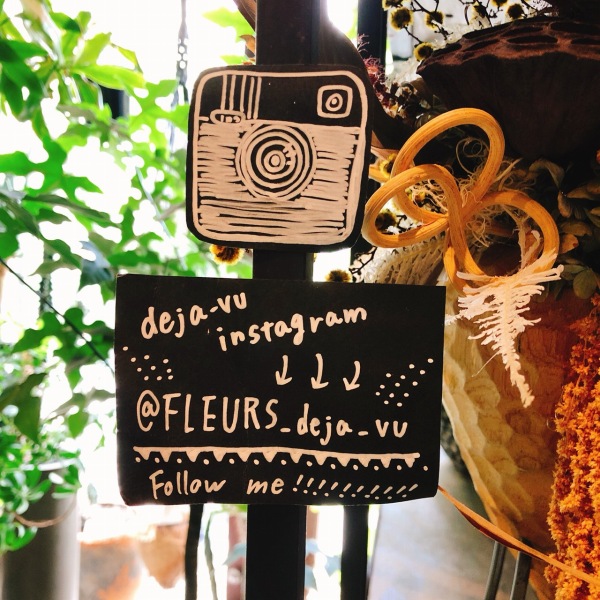 deja-vu
instagram
↓ ↓ ↓
@FLEURS_deja_vu
Follow me!!!!!!!!!!!